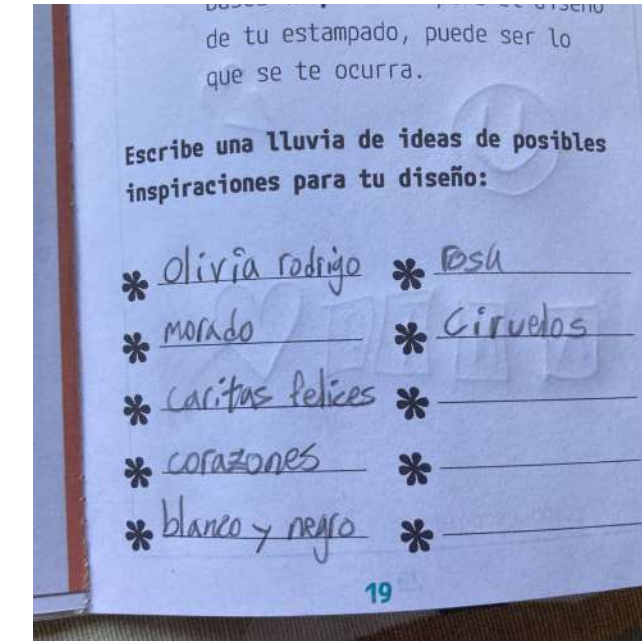 de tu estampado, puede ser lo
que se te ocurra.
Escribe una lluvia de ideas de posibles
inspiraciones para tu diseño:
* Olivia rodrigo
* morado
* caritas felices
* corazones
* blanco y negro
* rosa
* Ciruelos
*
*
*
19